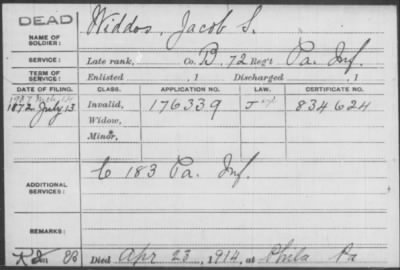 DEAD
NAME OF SOLDIER: Widdos, Jacob S.
SERVICE: Late rank, Co. B, 72 Reg't Pa. Inf.
TERM OF SERVICE: Enlisted , 1 Discharged , 1
DATE OF FILING. CLASS. APPLICATION NO. LAW. CERTIFICATE NO.
1872 July 13 Invalid, 176339 834624
Widow,
Minor,
ADDITIONAL SERVICES: C 183 Pa. Inf.
REMARKS:
Died Apr 23, 1914, at Phila Pa